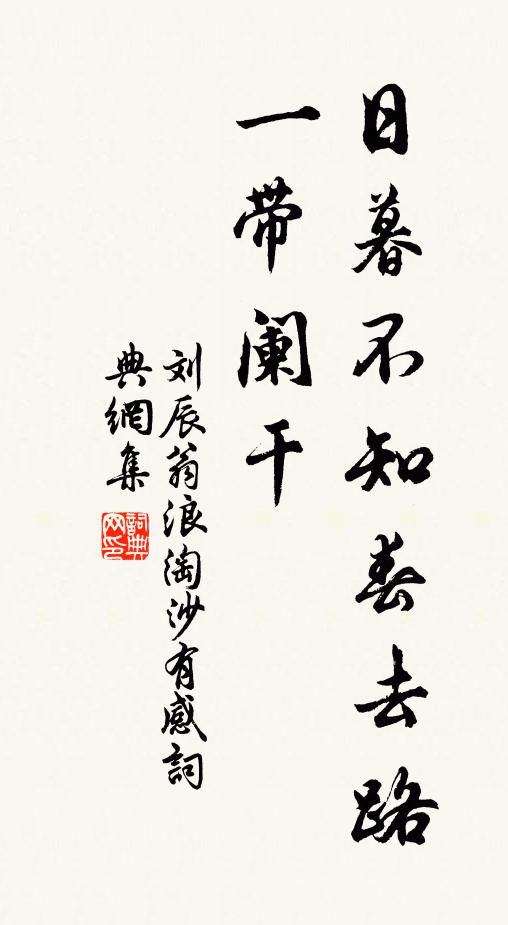 日暮不知春去路
一带阑干
刘辰翁浪淘沙有感詞
典網集
詞典网印